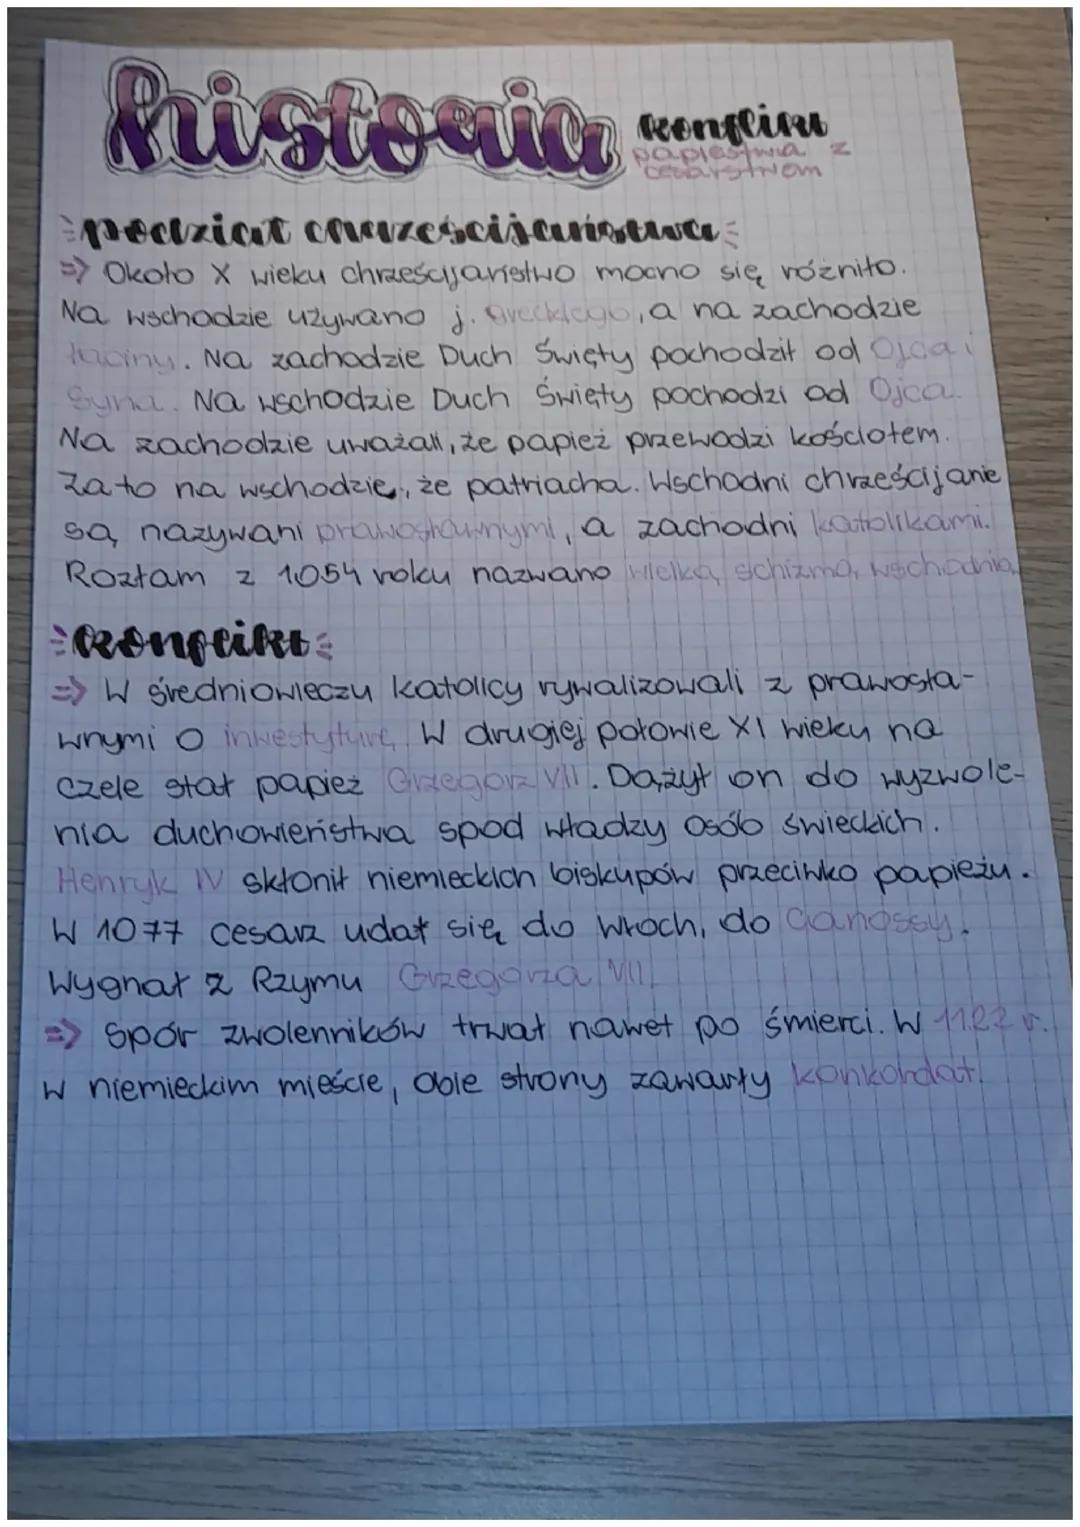 historia konflikt
papiestwa z
cesarstwem
podział chrześcijaństwa
=> Około X wieku chrześcijaństwo mocno się różniło.
Na wschodzie używano j. greckiego, a na zachodzie
łaciny. Na zachodzie Duch Święty pochodził od Ojca i
Syna. Na wschodzie Duch Święty pochodzi od Ojca.
Na zachodzie uważali, że papież przewodzi kościołem.
Za to na wschodzie, że patriacha. Wschodni chrześcijanie
są nazywani prawosławnymi, a zachodni katolikami.
Rozłam z 1054 roku nazwano wielką schizmą wschodnią
konflikt
=> W średniowieczu katolicy rywalizowali z prawosła-
wnymi o inwestyturę. W drugiej połowie XI wieku na
czele stał papież Grzegorz VII. Dążył on do wyzwole-
nia duchowieństwa spod władzy osób świeckich.
Henryk IV skłonił niemieckich biskupów przeciwko papieżu.
W 1077 cesarz udał się do Włoch, do Canossy.
Wygnał z Rzymu Grzegorza VII.
=> Spór zwolenników trwał nawet po śmierci. W 1122 r.
w niemieckim mieście, obie strony zawarły konkordat.